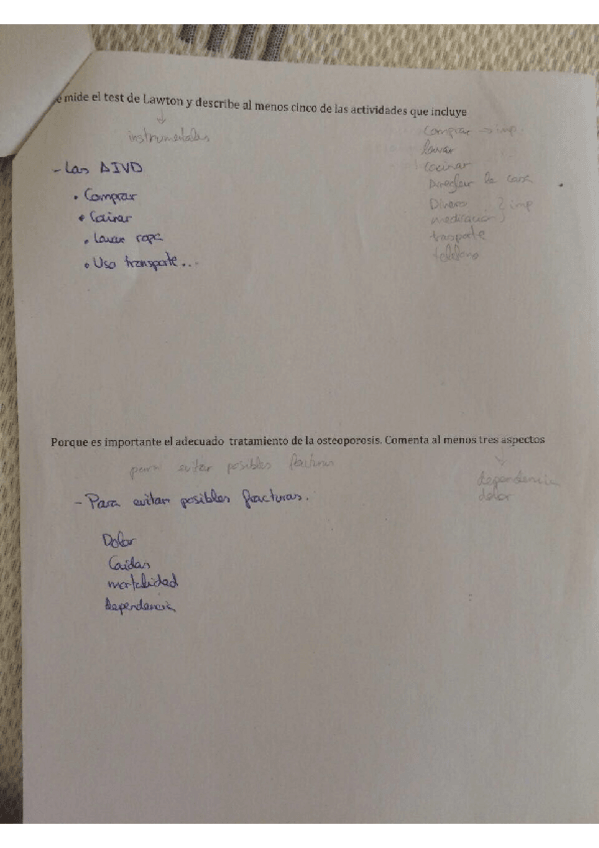 e mide el test de Lawton y describe al menos cinco de las actividades que incluye
instrumentales
- Las AIVD
• Comprar
• Cocinar
• Lavar ropa
• Usa transporte...
Comprar → imp.
lavar
cocinar
la casa
Dinero } imp
medicación
trasporte
teléfono
Porque es importante el adecuado tratamiento de la osteoporosis. Comenta al menos tres aspectos
para evitar posibles fracturas
dependencia
dolor
- Para evitar posibles fracturas.
Dolor
Caídas
mortalidad
Dependencia